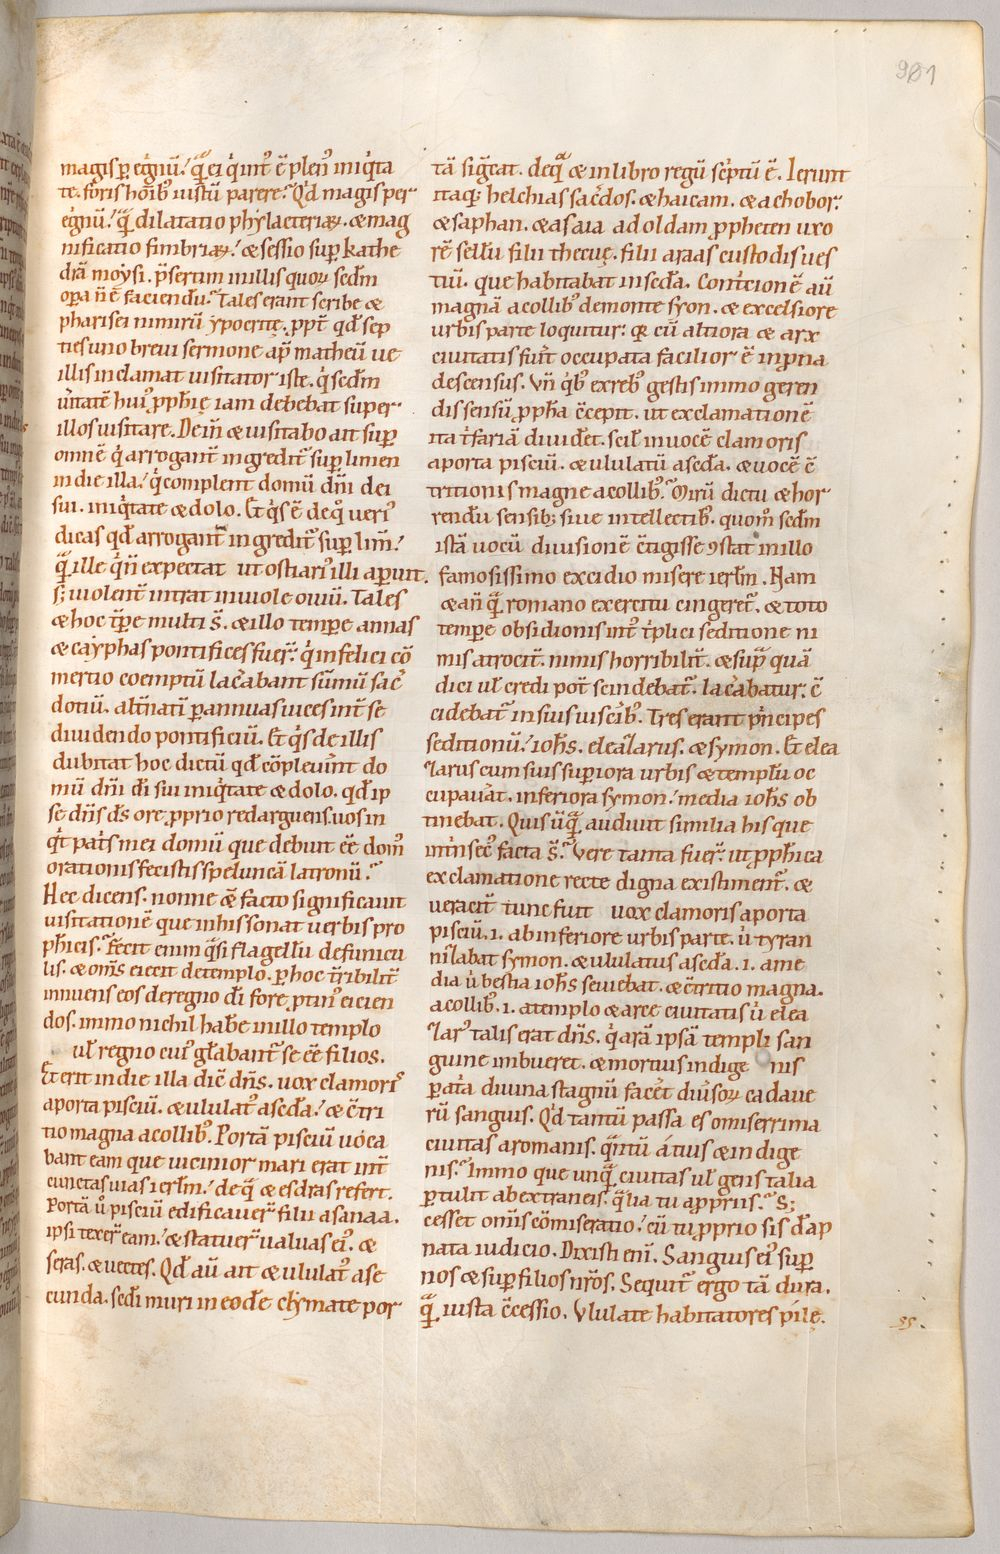 901
magis p̱ egͥnũ.ˊ q̃ͣ ei qͥ intꝰ ẽ plenꝰ iniqͥta
te. foris hoĩbꝰ iustũ parere.ˀ Qͥd magis per
egͥnũ.ˊ q̃ͣ dilatatio phylacteriaꝝ. & mag
nificatio fimbriaꝝ.ˊ & sessio sup̱ kathe
drã moysi. p̃sertim in illis quoꝝ sedm̃
op̱a ñ ẽ faciendũ.ˀ Tales erant scribe &
pharisei nimirũ ypocritę. ppt̃ qđ sep
ties uno breui sermone ap̃ matheũ ue
illis inclamat uisitator iste. qͥ sedm̃
ueͥtatẽ huiꝰ pphͥę iam debebat super
illos uisitare. Dein̄ & uisitabo ait sup̱
omnẽ qͥ arrogant̃ ingredit̃ sup̱ limen
in die illa.ˊ qͥ complent domũ dñi dei
sui. iniqͥtate & dolo. Et qͥs ẽ de qͦ ueriꝰ
dicas qđ arrogant̃ ingredit̃ sup̱ lim̃.ˊ
q̃ͣ ille qͥ ñ expectat ut ostiariꝰ illi ap̱iat.
s; uiolent̃ intrat in uiole ouiũ. Tales
& hoc tp̱e multi s̃. & illo tempe annas
& cayphas pontifices fuer̃. qͥ infelici cõ
mertio coemptũ lacͤabant sũmũ sacͤ
dotiũ. alt̃natĩ p̱ annuas uices int̃ se
diuidendo pontificiũ. Et qͥs de illis
dubitat hoc dictũ qđ cõpleuĩt do
mũ dñi đi sui iniqͥtate & dolo. qđ ip
se dñs đs ore pprio redarguens. uos in
qͥt patͥs mei domũ que debuit eẽ domꝰ
orationis fecistis speluncã latronũ.ˀ
Hec dicens. nonne & facto significauit
uisitationẽ que in his sonat uerbis pro
phͥcis.ˀ Fecit enim qͣ̃si flagellũ de funicu
lis. & om̃s eiecit de templo. p̱ hoc t̃ribilit̃
innuens eos de regno đi fore ptinꝰ eicien
dos. immo nichil habͤe in illo templo
uł regno cuiꝰ głabant̃ se eẽ filios.
Et erit in die illa dic̃ dñs. uox clamoriꝰ
a porta pisciũ. & ululatꝰ a secͩa.ˊ & c̃tri
tio magna a collibꝰ. Portã pisciũ uoca
bant eam que uicinior mari erat int̃
cunctas uias ierłm.ˊ de q̃ͣ & esdras refert.
Portã ũ pisciũ edificauer̃ filii asanaa.
ipsi texer̃ eam.ˊ & statuer̃ ualuas eiꝰ. &
seras. & uectes. Qđ aũ ait & ululatꝰ a se
cunda. secđi muri in eođe clymate por
tã sigͥcat. de q̃ͣ & in libro regũ scͥptũ ẽ. Ierunt
itaq; helchias sacͤdos. & haicam. & achobor.
& saphan. & asaia ad oldam ppheten uxo
rẽ sellũ filii thecuę. filii araas custodis ues
tiũ. que habitabat in secđa. Contͥcionẽ aũ
magnã a collibꝰ de monte syon. & excelsiore
urbis parte loquitur: qꝛ cũ altiora & arx
ciuitatis fuͥt occupata facilior ẽ in pͥna
descensus. Vñ qͥbꝰ ex rebꝰ gestis immo geren
dis sensũ pphͥa c̃cepit. ut exclamationẽ
ita tͥfariã diuidͤet. scił in uocẽ clamoris
a porta pisciũ. & ululatũ a secđa. & uocẽ c̃
tritionis magne a collibꝰ.ˀ Mirũ dictu & hor
rendũ sensib; siue intellectibꝰ. quom̃ sedm̃
istã uocũ diuisionẽ c̃tigisse ꝯstat in illo
famosissimo excidio misere ierłm. Nam
& añ q̃ͣ romano exercitu cingeret̃. & toto
tempe obsidionis intꝰ tͥplici seditione ni
mis atrocit̃. nimis horribilit̃. & sup̃ͣ quã
dici uł credi pot̃ scindebat̃. lacͤabatur. c̃
cidebat̃ in suis uiscͤibꝰ. Tres erant pͥncipes
seditionũ.ˊ iohs̃. eleaˢarus. & symon. Et elea
ˢarus cum suis sup̱iora urbis & templũ oc
cupauͣt. inferiora symon.ˊ media iohs̃ ob
tinebat. Quis ũq̃ͣ audiuit similia his que
intͥnsecꝰ facta s̃.ˀ Vere tanta fuer̃. ut pphͥca
exclamatione recte digna existiment̃. &
ueracit̃ tunc fuit uox clamoris a porta
pisciũ. .i. ab inferiore urbis parte. ũ tyran
niˢabat symon. & ululatus a secđa. .i. a me
dia ũ bestia iohs̃ seuiebat. & c̃tritio magna.
a collibꝰ. .i. a templo & arce ciuitatis ũ elea
ˢarꝰ talis erat dñs. qͥ arã ipsã templi san
guine imbueret. & mortuis indige nis
p̱ atͥa diuina stagnũ facͤet diũsoꝝ cadaue
rũ sanguis. Qͥd tantũ passa es o miserrima
ciuitas a romanis. qͣ̃ntũ a tuis & indige
nis.ˀ Immo que unq̃ͣ ciuitas uł gens talia
p̱tulit ab extraneis. qͣ̃lia tu a ppriis.ˀ S;
cesset om̃is cõmiseratio.ˊ cũ tu pprio sis dͣ̃p
nata iudicio. Dixisti enĩ. Sanguis eiꝰ sup̱
nos & sup̱ filios nr̃os. Sequit̃ ergo tã dura.
q̃ͣ iusta c̃cessio. Vlulate habitatores pilę.